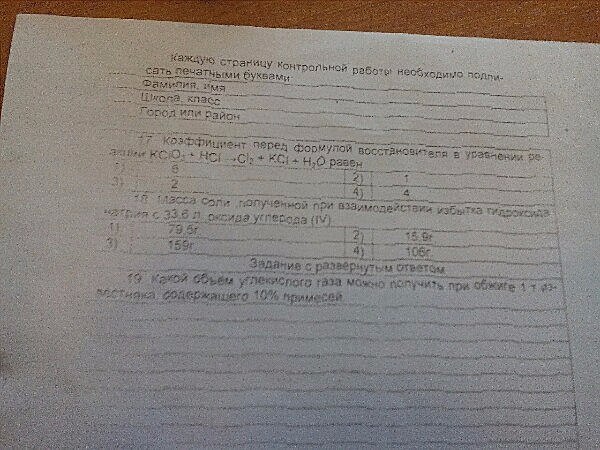 Каждую страницу контрольной работы необходимо подпи-
сать печатными буквами:
Фамилия, имя
Школа, класс
Город или район
17. Коэффициент перед формулой восстановителя в уравнении ре-
акции KClO3 + HCl → Cl2 + KCl + H2O равен
1) 6 2) 1
3) 2 4) 4
18. Масса соли ,полученной при взаимодействии избытка гидроксида
натрия с 33,6 л оксида углерода (IV)
1) 79,5г 2) 15,9г
3) 159г 4) 106г
Задание с развернутым ответом
19. Какой объем углекислого газа можно получить при обжиге 1 т из-
вестняка, содержащего 10% примесей.